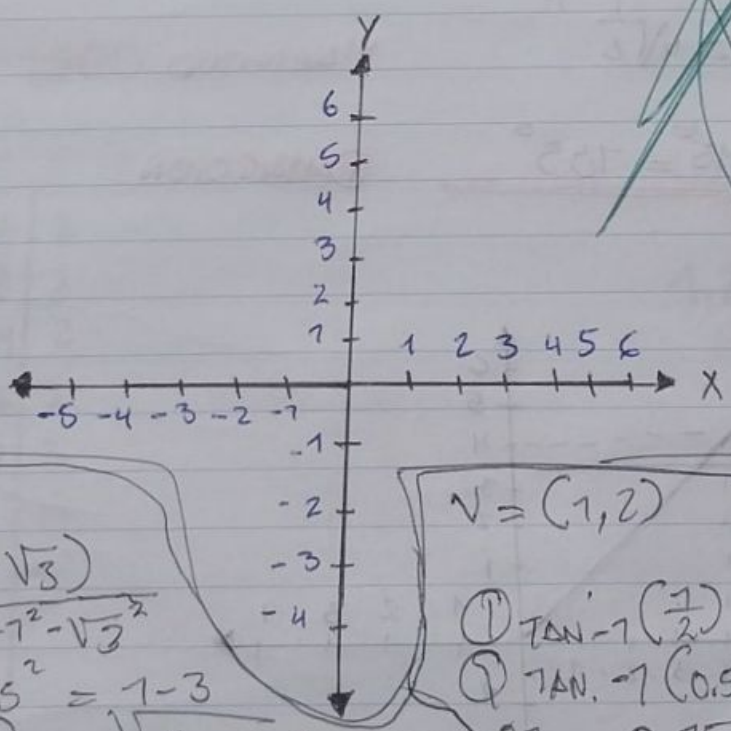 Y
6
5
4
3
2
1
1 2 3 4 5 6
X
-5 -4 -3 -2 -1
-1
-2
-3
-4
V = (1,2)
√3)
1² - √3²
² = 1-3
① TAN -1 (1/2)
② TAN. -1 (0.5